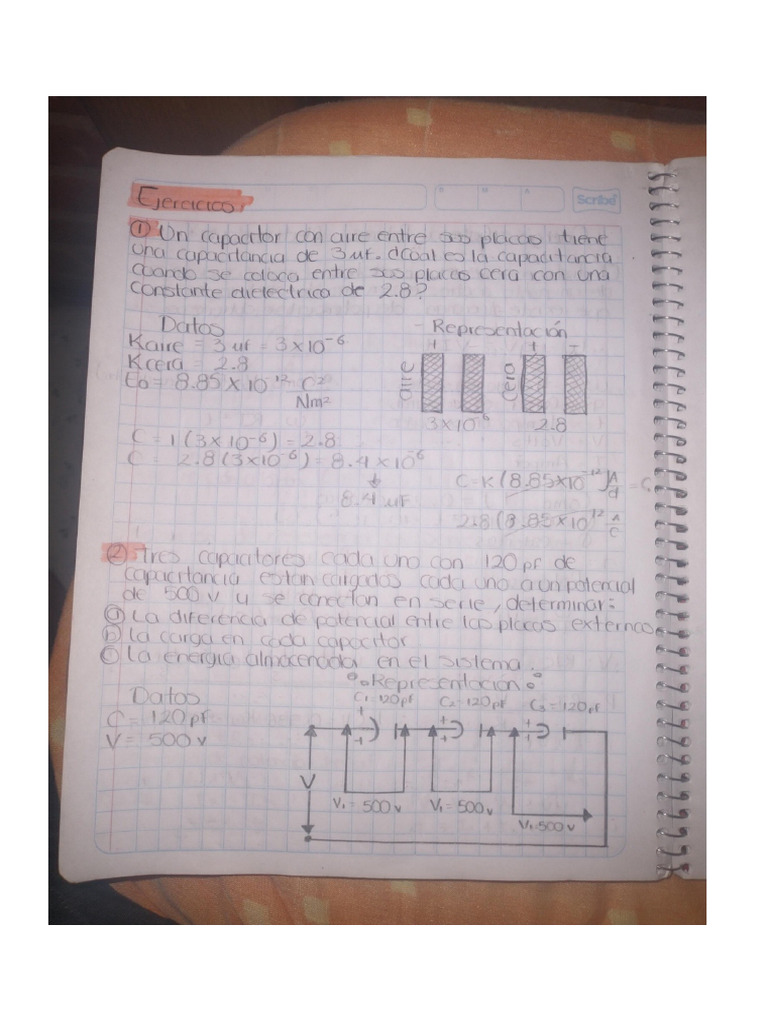 Scribe
Ejercicico
① Un capacitor con aire entre sus placas tiene
una capacitancia de 3 uf. ¿Cual es la capacitancia
cuando se coloca entre sus placas cera con una
constante dielectrica de 2.8?
Datos
Representación
Kaire = 3 uf = 3 x 10⁻⁶
Kcera = 2.8
Eo = 8.85 x 10⁻¹² C²
Nm²
+ - + -
aire
cera
3x10⁻⁶ 2.8
C = 1 (3 x 10⁻⁶) = 2.8
C = 2.8 (3x10⁻⁶) = 8.4 x 10⁻⁶
8.4 uf
C = K (8.85x10⁻¹²) A/d = C
2.8 (8.85x10¹² A/C
② Tres capacitores cada uno con 120 pf de
capacitancia estan cargados cada uno a un potencial
de 500 v y se conectan en serie, determinar:
ⓐ La diferencia de potencial entre las placas externas
ⓑ La carga en cada capacitor
ⓒ La energia almacenada en el sistema.
Representación
Datos
C₁ = 120pf C₂ = 120pf C₃ = 120pf
C = 120 pf
V = 500 v
V
V₁ = 500 v V₁ = 500 v V₁ 500 v